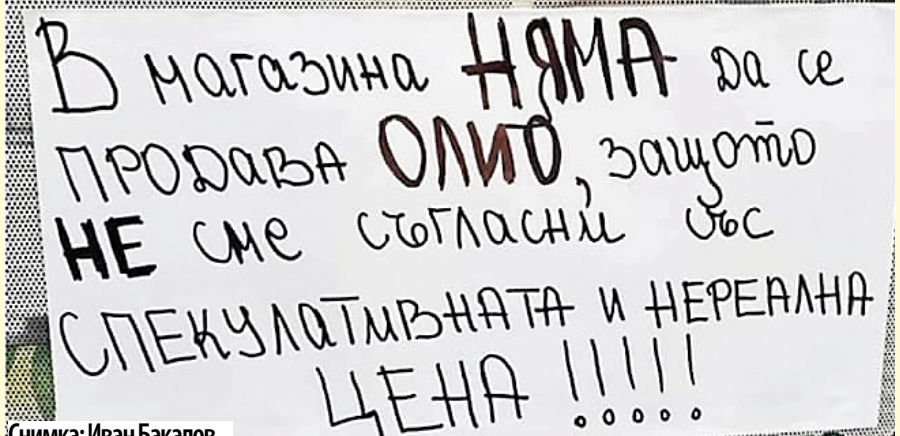 В магазина НЯМА да се
ПРОДАВА ОЛИО, защото
НЕ сме съгласни със
СПЕКУЛАТИВНАТА И НЕРЕАЛНА
ЦЕНА !!!!!
Снимка: Иван Бакалов